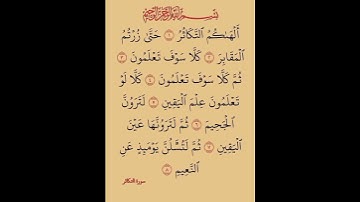 بِسْمِ اللَّهِ الرَّحْمَٰنِ الرَّحِيمِ
أَلْهَىٰكُمُ التَّكَاثُرُ ١ حَتَّىٰ زُرْتُمُ
الْمَقَابِرَ ٢ كَلَّا سَوْفَ تَعْلَمُونَ ٣
ثُمَّ كَلَّا سَوْفَ تَعْلَمُونَ ٤ كَلَّا لَوْ
تَعْلَمُونَ عِلْمَ الْيَقِينِ ٥ لَتَرَوُنَّ
الْجَحِيمَ ٦ ثُمَّ لَتَرَوُنَّهَا عَيْنَ
الْيَقِينِ ٧ ثُمَّ لَتُسْـَٔلُنَّ يَوْمَئِذٍ عَنِ
النَّعِيمِ ٨
سورة التكاثر